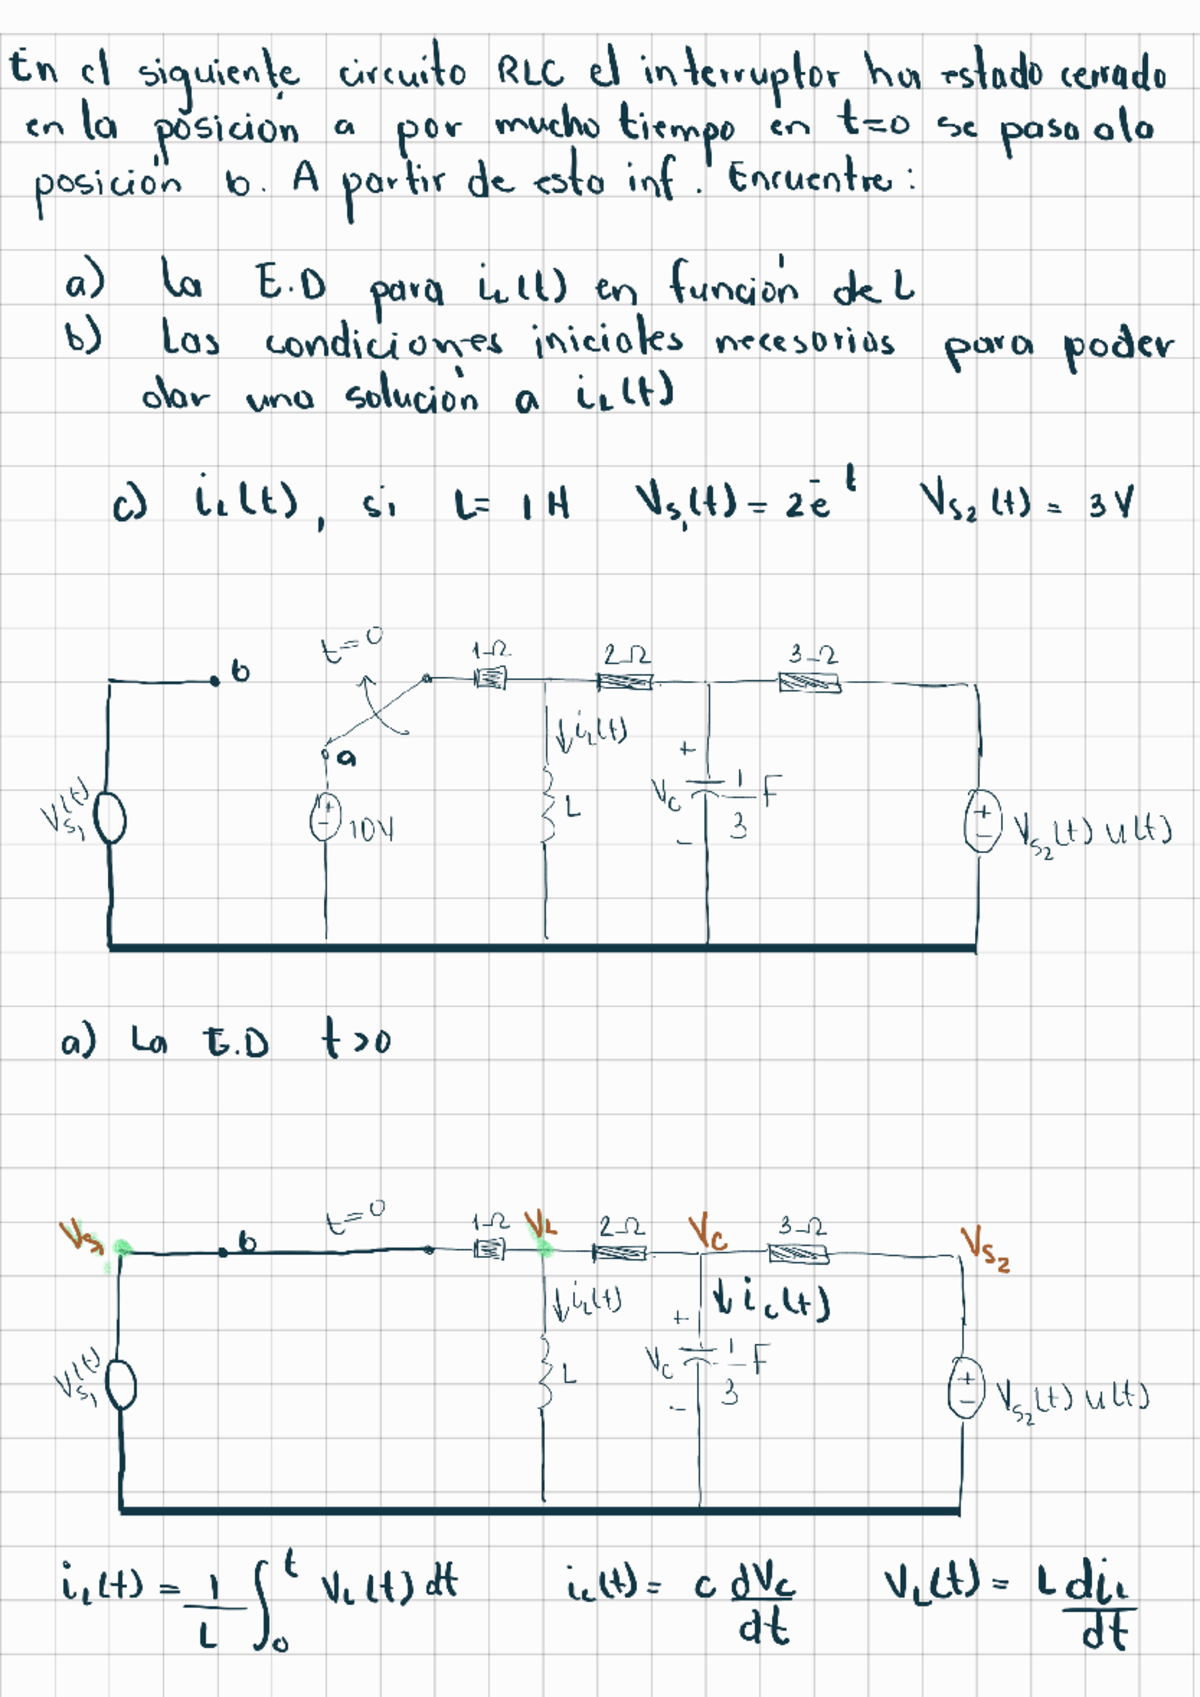 En el siguiente circuito RLC el interruptor ha estado cerrado
en la posición a por mucho tiempo en t=0 se pasa a la
posición b. A partir de esta inf. Encuentre:
a) La E.D para iL(t) en función de L
b) Las condiciones iniciales necesarias para poder
dar una solución a iL(t)
c) iL(t), si L= 1H VS1(t) = 2e^-t VS2(t) = 3V
t=0 1Ω 2Ω 3Ω
b
a
iL(t)
+
VS1(t) + - 10V L VC 1/3 F + - VS2(t) u(t)
-
a) La E.D t>0
VS1 b t=0 1Ω VL 2Ω VC 3Ω VS2
iL(t) + iC(t)
VS1(t) L VC 1/3 F + - VS2(t) u(t)
-
iL(t) = 1/L ∫0^t VL(t) dt ic(t) = C dVc/dt VL(t) = L diL/dt